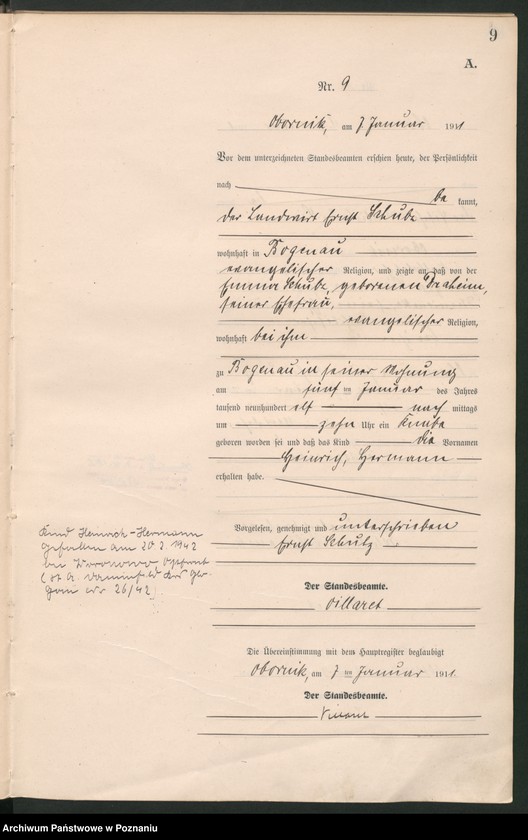 9
A.
Nr. 9
Obornik, am 7 Januar 1911
Vor dem unterzeichneten Standesbeamten erschien heute, der Persönlichkeit
nach be kannt,
der Landwirt Ernst Schulz
wohnhaft in Bogenau
evangelischer Religion, und zeigte an, daß von der
Emma Schulz, geborenen Draheim,
seiner Ehefrau,
evangelischer Religion,
wohnhaft bei ihm
zu Bogenau in seiner Wohnung
am fünf ten Januar des Jahres
tausend neunhundert elf nach mittags
um zehn Uhr ein Knabe
geboren worden sei und daß das Kind die Vornamen
Heinrich, Hermann
erhalten habe.
Vorgelesen, genehmigt und unterschrieben
Ernst Schulz
Kind Heinrich-Hermann
gefallen am 20.2.1942
bei
(St. A.
26/42)
Der Standesbeamte.
Villaret
Die Übereinstimmung mit dem Hauptregister beglaubigt
Obornik, am 7 ten Januar 1911
Der Standesbeamte.
Villaret
Archiwum Państwowe w Poznaniu